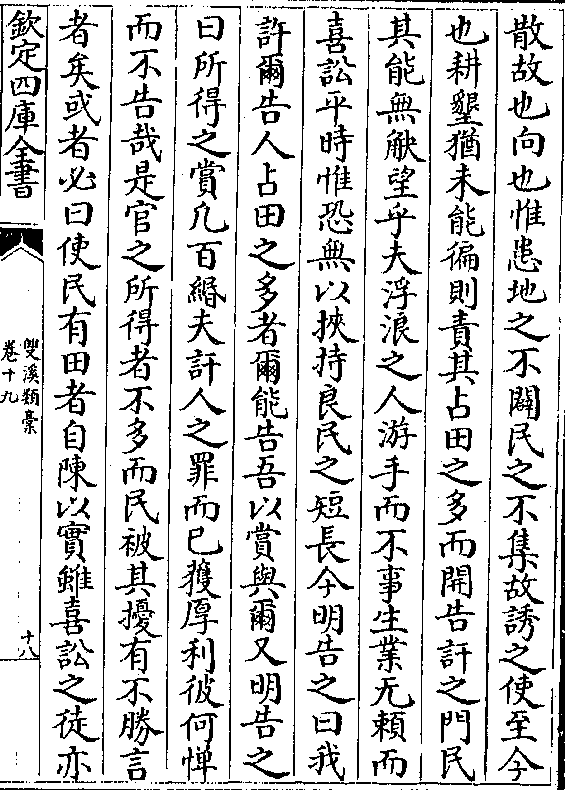 散故也向也惟患地之不闢民之不集故誘之使至今
也耕墾猶未能徧則責其占田之多而開告訐之門民
其能無觖望乎夫浮浪之人游手而不事生業无頼而
喜訟平時惟恐無以挾持良民之短長今明告之曰我
許爾告人占田之多者爾能告吾以賞與爾又明告之
曰所得之賞凡百緡夫訐人之罪而已獲厚利彼何憚
而不告哉是官之所得者不多而民被其擾有不勝言
者矣或者必曰使民有田者自陳以實雖喜訟之徒亦
欽定四庫全書
雙溪類稾
卷十九
十八